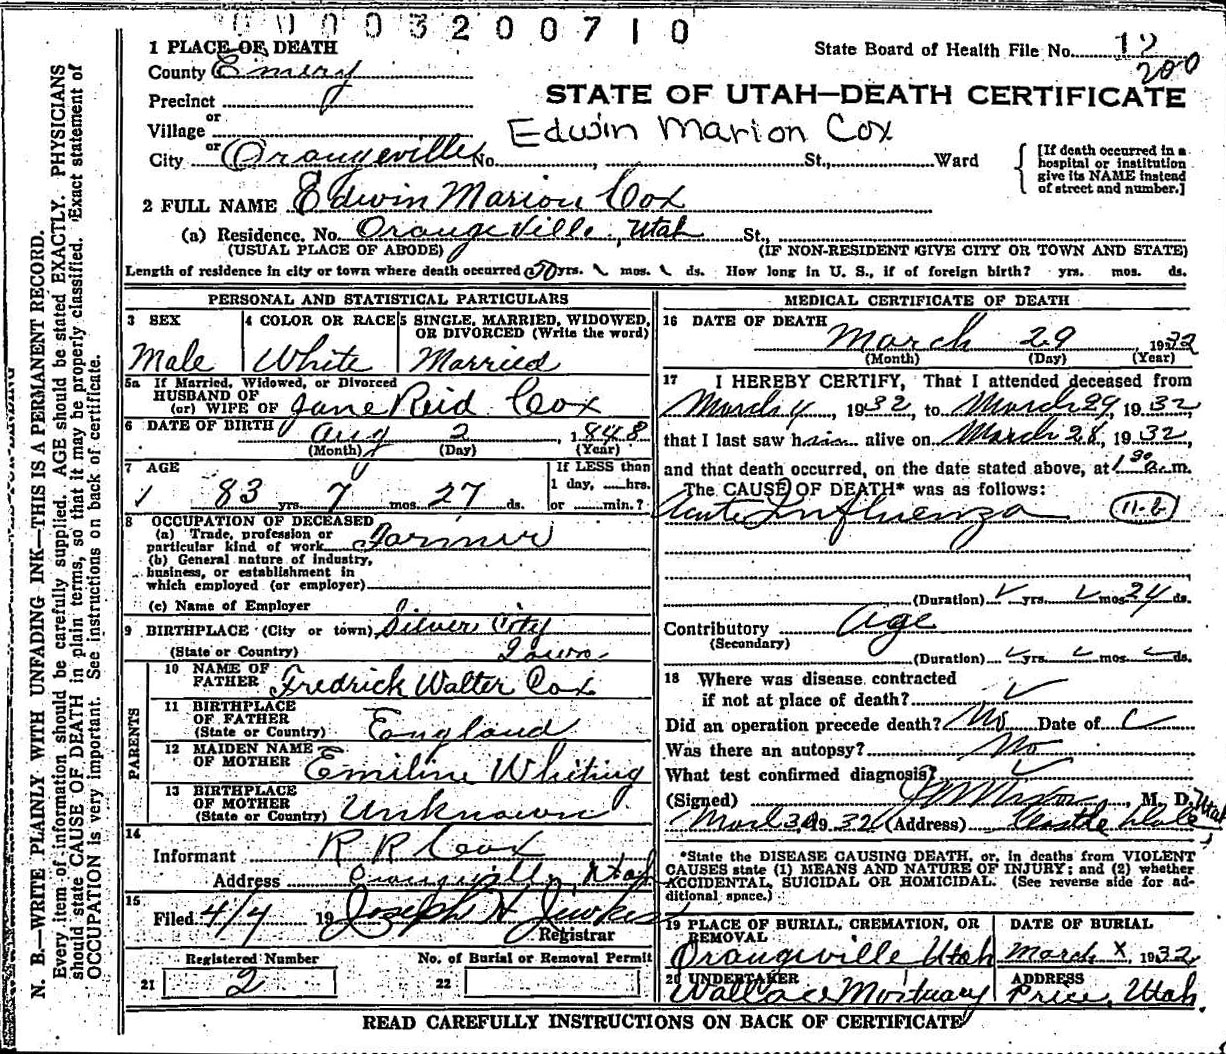 0003200710
1 PLACE OF DEATH
State Board of Health File No. 12
200
County Emery
Precinct
or
Village
or
City Orangeville No. St., Ward
STATE OF UTAH—DEATH CERTIFICATE
Edwin Marion Cox
[If death occurred in a hospital or institution give its NAME instead of street and number.]
2 FULL NAME Edwin Marion Cox
(a) Residence. No. Orangeville, Utah St.,
(USUAL PLACE OF ABODE) (IF NON-RESIDENT GIVE CITY OR TOWN AND STATE)
Length of residence in city or town where death occurred 50 yrs. mos. ds. How long in U. S., if of foreign birth? yrs. mos. ds.
PERSONAL AND STATISTICAL PARTICULARS
3 SEX
Male
4 COLOR OR RACE
White
5 SINGLE, MARRIED, WIDOWED, OR DIVORCED (Write the word)
Married
5a If Married, Widowed, or Divorced
HUSBAND OF
(or) WIFE OF Jane Reid Cox
6 DATE OF BIRTH Aug 2, 1848
(Month) (Day) (Year)
7 AGE
83 yrs. 7 mos. 27 ds.
If LESS than
1 day, hrs.
or min.?
8 OCCUPATION OF DECEASED
(a) Trade, profession or
particular kind of work Farmer
(b) General nature of industry,
business, or establishment in
which employed (or employer)
(c) Name of Employer
9 BIRTHPLACE (City or town) Silver City
(State or Country) Iowa
PARENTS
10 NAME OF
FATHER Fredrick Walter Cox
11 BIRTHPLACE
OF FATHER
(State or Country) England
12 MAIDEN NAME
OF MOTHER Emiline Whiting
13 BIRTHPLACE
OF MOTHER
(State or Country) Unknown
14
Informant R R Cox
Address Orangeville, Utah
15
Filed 4/4 19 Joseph H Jewkes
Registrar
Registered Number
21 2
No. of Burial or Removal Permit
22
MEDICAL CERTIFICATE OF DEATH
16 DATE OF DEATH
March 29 1932
(Month) (Day) (Year)
17 I HEREBY CERTIFY, That I attended deceased from
March 4, 1932, to March 29, 1932
that I last saw him alive on March 28, 1932,
and that death occurred, on the date stated above, at 1 30 a.m.
The CAUSE OF DEATH* was as follows:
Acute Influenza 11-b
(Duration) yrs. mos. 24 ds.
Contributory Age
(Secondary)
(Duration) yrs. mos. ds.
18 Where was disease contracted
if not at place of death?
Did an operation precede death? No Date of
Was there an autopsy? No
What test confirmed diagnosis?
(Signed) , M. D.
Mar 30 1932 (Address) Castle Dale Utah
*State the DISEASE CAUSING DEATH, or, in deaths from VIOLENT
CAUSES state (1) MEANS AND NATURE OF INJURY; and (2) whether
ACCIDENTAL, SUICIDAL OR HOMICIDAL. (See reverse side for ad-
ditional space.)
19 PLACE OF BURIAL, CREMATION, OR
REMOVAL
Orangeville Utah
DATE OF BURIAL
March X, 1932
20 UNDERTAKER
Wallace Mortuary
ADDRESS
Price, Utah
READ CAREFULLY INSTRUCTIONS ON BACK OF CERTIFICATE
N. B.—WRITE PLAINLY WITH UNFADING INK—THIS IS A PERMANENT RECORD.
Every item of information should be carefully supplied. AGE should be stated EXACTLY. PHYSICIANS
should state CAUSE OF DEATH in plain terms, so that it may be properly classified. Exact statement of
OCCUPATION is very important. See instructions on back of certificate.